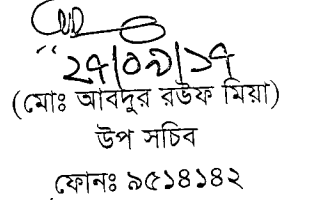 ২৭|০৯|১৭
(মোঃ আবদুর রউফ মিয়া)
উপ সচিব
ফোনঃ ৯৫১৪১৪২